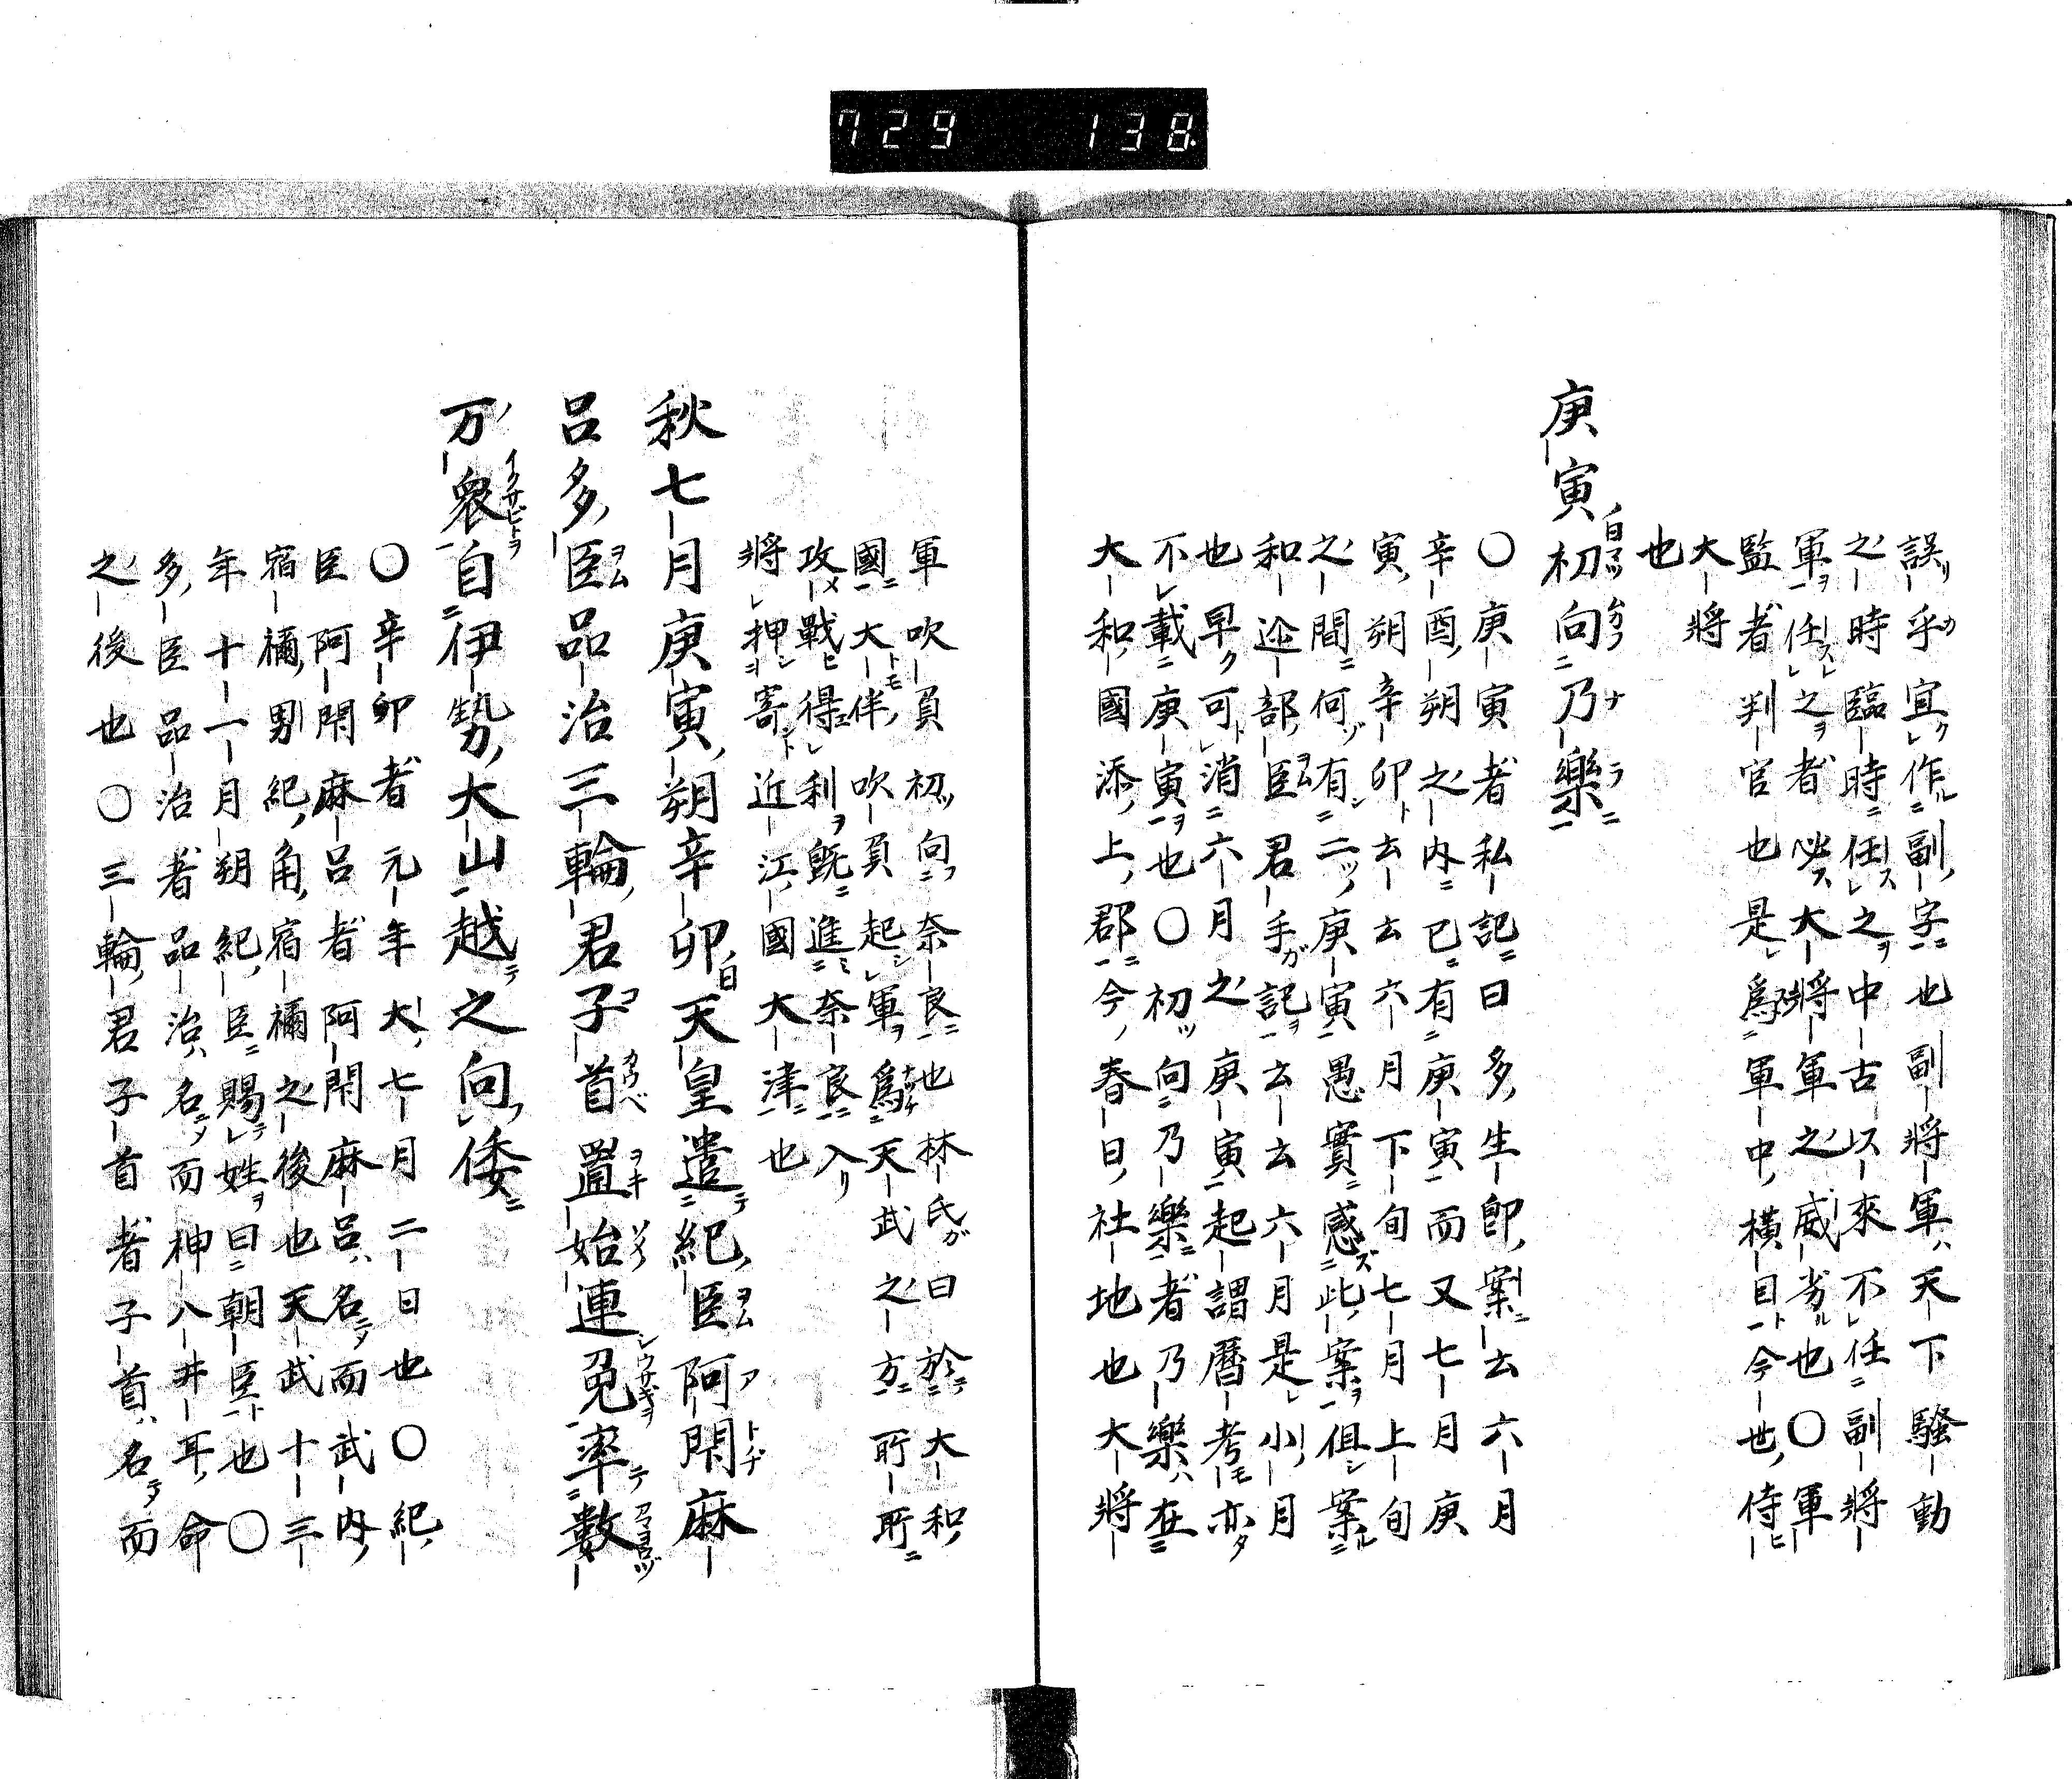 729 138
誤乎宜作副字也副将軍天下騷動
之時臨時任之中古以來不任副將
軍任之者必大將軍之威劣也〇軍
監者判官也是爲軍中橫目今世侍
大將
也
庚寅初向乃樂
〇庚寅者私記曰多生卽案云六月
辛酉朔之内已有庚寅而又七月庚
寅朔辛卯去去六月下旬七月上旬
之間何有二庚寅愚實惑此案俱案
和迩部臣君手記云云六月是小月
也早可消六月之庚寅起謂曆考亦
不載庚寅也〇初向乃樂者乃樂在
大和國添上郡今春日社地也大將
軍吹負初向奈良也林氏曰於大和
國大伴吹負起軍爲天武之方所所
攻戰得利旣進奈良入
將押寄近江國大津也
秋七月庚寅朔辛卯天皇遣紀臣阿閇麻
呂多臣品治三輪君子首置始連兎率數
万衆自伊勢大山越之向倭
〇辛卯者元年大七月二日也〇紀
臣阿閇麻呂者阿閇麻呂名而武内
宿禰男紀角宿禰之後也天武十三
年十一月朔紀臣賜姓曰朝臣也〇
多臣品治者品治名而神八井耳命
之後也〇三輪君子首者子首名而